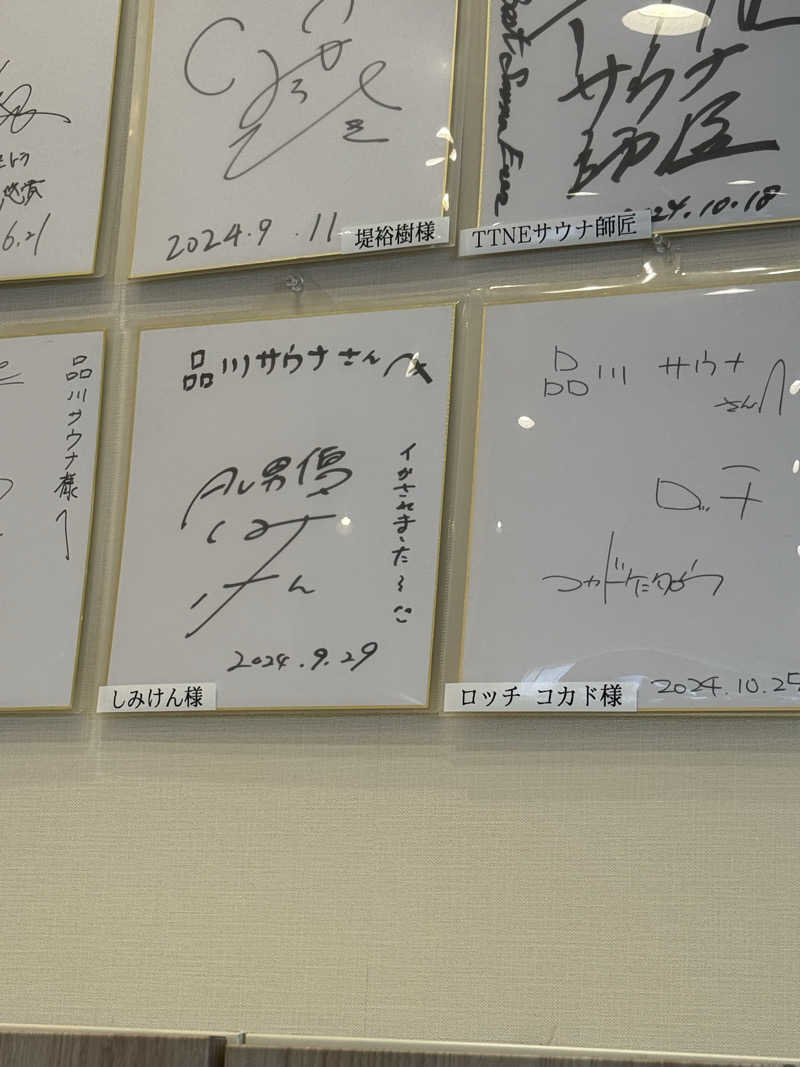 6.21
2024.9.11
堤裕樹様
Best Sauna Ever
サウナ
師匠
24.10.18
TTNEサウナ師匠
品川サウナ様へ
品川サウナさんへ
AV男優
しみけん
イかされました〜
2024.9.29
しみけん様
品川サウナ
さんへ
ロッチ
コカドケンタロウ
2024.10.25
ロッチ コカド様